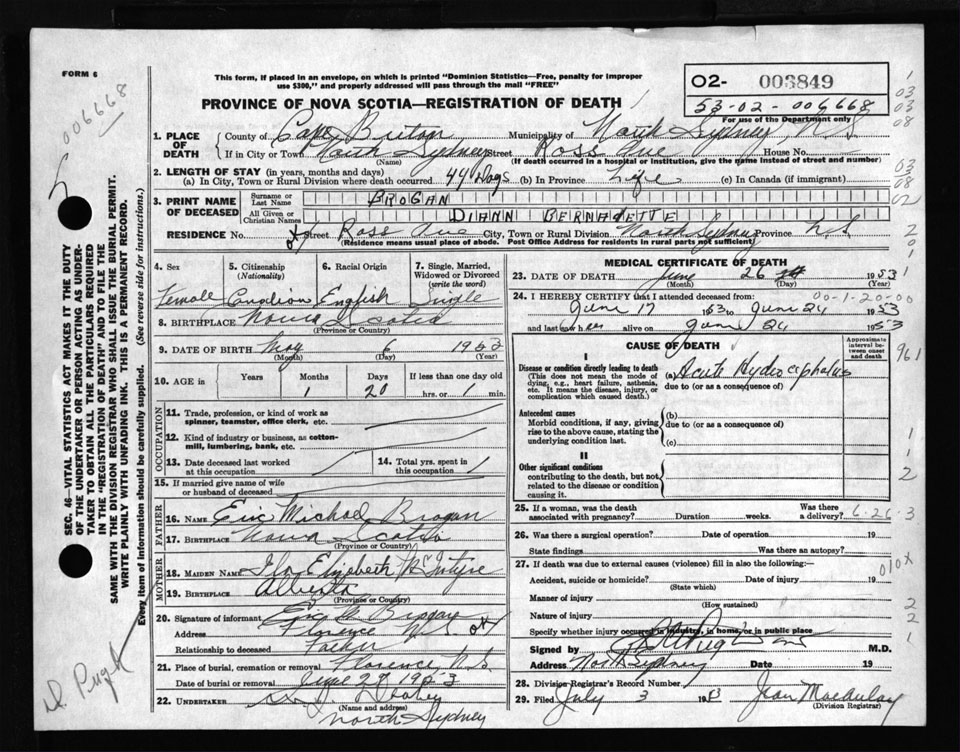 FORM 6
This form, if placed in an envelope, on which is printed "Dominion Statistics—Free, penalty for improper
use $300," and properly addressed will pass through the mail "FREE"
PROVINCE OF NOVA SCOTIA—REGISTRATION OF DEATH
02- 003849
53-02-006668
For use of the Department only
006668
1. PLACE OF DEATH
County of Cape Breton Municipality of North Sydney, N.S.
If in City or Town North Sydney Street Ross Ave House No.
(Name) (If death occurred in a hospital or institution, give the name instead of street and number)
2. LENGTH OF STAY (in years, months and days)
(a) In City, Town or Rural Division where death occurred 49 Days (b) In Province Life (c) In Canada (if immigrant)
3. PRINT NAME OF DECEASED
Surname or Last Name BROGAN
All Given or Christian Names DIANN BERNADETTE
RESIDENCE No. Street Ross Ave City, Town or Rural Division North Sydney Province N.S.
(Residence means usual place of abode. Post Office Address for residents in rural parts not sufficient)
4. Sex
5. Citizenship (Nationality)
6. Racial Origin
7. Single, Married, Widowed or Divorced (write the word)
Female Canadian English Single
8. BIRTHPLACE Nova Scotia
(Province or Country)
9. DATE OF BIRTH May 6 1953
(Month) (Day) (Year)
10. AGE in Years Months Days If less than one day old
1 20 hrs. or min.
OCCUPATION
11. Trade, profession, or kind of work as spinner, teamster, office clerk, etc.
12. Kind of industry or business, as cotton-mill, lumbering, bank, etc.
13. Date deceased last worked at this occupation
14. Total yrs. spent in this occupation
15. If married give name of wife or husband of deceased
FATHER
16. NAME Eric Michael Brogan
17. BIRTHPLACE Nova Scotia
(Province or Country)
MOTHER
18. MAIDEN NAME Elizabeth McIntyre
19. BIRTHPLACE Alberta
(Province or Country)
20. Signature of informant Eric M Brogan
Address Florence N.S.
Relationship to deceased Father
21. Place of burial, cremation or removal Florence, N.S.
Date of burial or removal June 27 1953
22. UNDERTAKER
(Name and address)
North Sydney
MEDICAL CERTIFICATE OF DEATH
23. DATE OF DEATH June 26 1953
(Month) (Day) (Year)
00-1-20-00
24. I HEREBY CERTIFY that I attended deceased from
June 17 1953 to June 24 1953
and last saw her alive on June 24 1953
CAUSE OF DEATH
Approximate interval between onset and death
I
Disease or condition directly leading to death
(This does not mean the mode of dying, e.g., heart failure, asthenia, etc. It means the disease, injury, or complication which caused death.)
(a) Acute Hydrocephalus
due to (or as a consequence of)
Antecedent causes
Morbid conditions, if any, giving rise to the above cause, stating the underlying condition last.
(b)
due to (or as a consequence of)
(c)
II
Other significant conditions
contributing to the death, but not related to the disease or condition causing it.
961
25. If a woman, was the death associated with pregnancy? Duration weeks. Was there a delivery? 6-26-3
26. Was there a surgical operation? Date of operation 19
State findings Was there an autopsy?
27. If death was due to external causes (violence) fill in also the following:—
Accident, suicide or homicide? Date of injury 19
(State which)
Manner of injury
(How sustained)
Nature of injury
Specify whether injury occurred in industry, in home, or in public place
010X
Signed by M.D.
Address North Sydney Date 19
28. Division Registrar's Record Number
29. Filed July 3 1953 Jean MacAulay
(Division Registrar)
SEC. 46—VITAL STATISTICS ACT MAKES IT THE DUTY
OF THE UNDERTAKER OR PERSON ACTING AS UNDER-
TAKER TO OBTAIN ALL THE PARTICULARS REQUIRED
IN THE "REGISTRATION OF DEATH" AND TO FILE THE
SAME WITH THE DIVISION REGISTRAR WHO SHALL ISSUE THE BURIAL PERMIT.
WRITE PLAINLY WITH UNFADING INK. THIS IS A PERMANENT RECORD.
Every item of Information should be carefully supplied. (See reverse side for instructions.)
Dr. Pugh